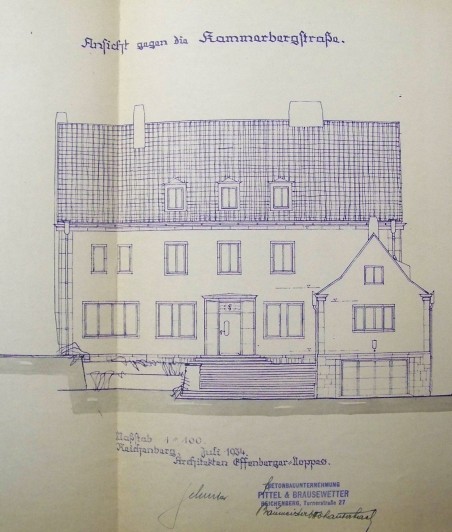 Ansicht gegen die Kammerbergstraße.
Maßstab 1-100.
Reichenberg, Juli 1934.
Architekten Effenberger-Noppes.
BETONBAUUNTERNEHMUNG
PITTEL & BRAUSEWETTER
REICHENBERG, Turnerstraße 27